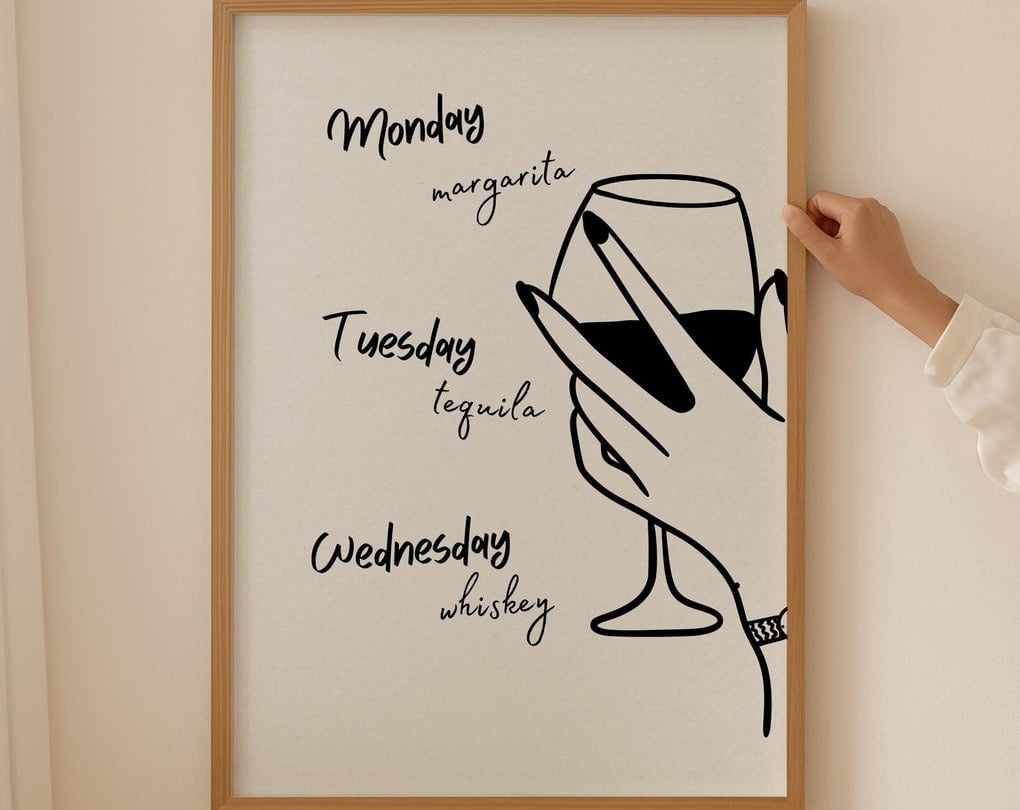 Monday
margarita
Tuesday
tequila
Wednesday
whiskey